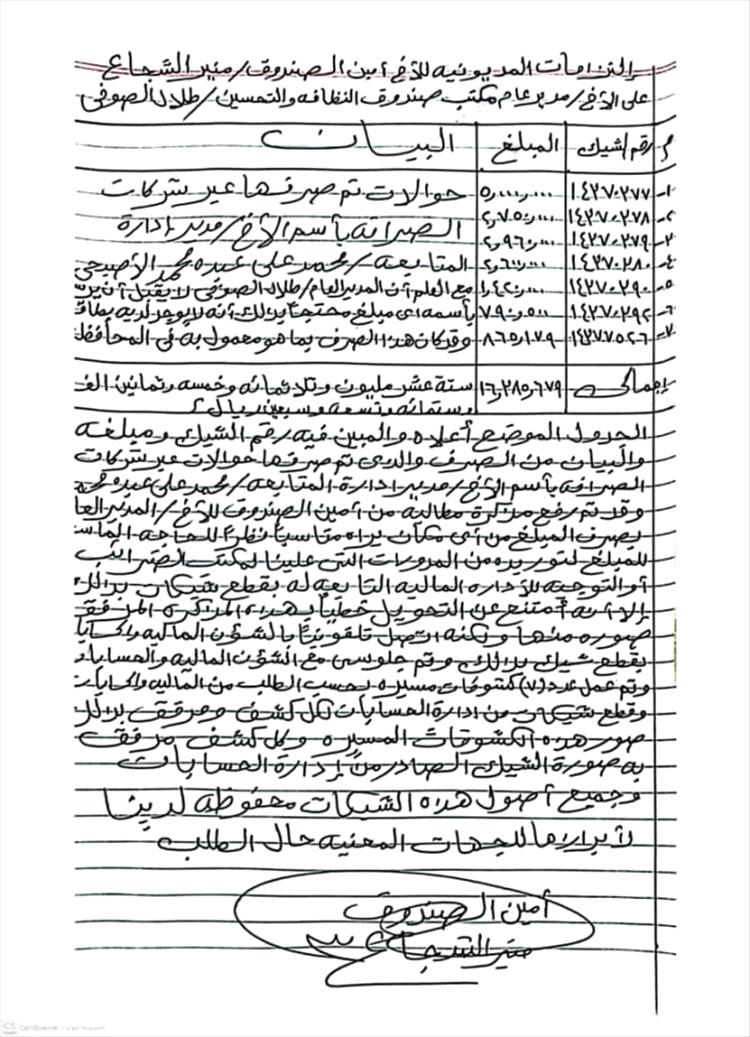 إلتزامات المديونيه للأخ أمين الصندوق/ منير الشجاع
على الأخ/ مدير عام مكتب صندوق النظافه والتحسين/ طلال الصوفي
م رقم الشيك المبلغ البيان
١- ١٤٣٧٠٢٧٧ ٥,٠٠٠,٠٠٠ حوالات تم صرفها عبر شركات
٢- ١٤٣٧٠٢٧٨ ٢,٧٥٠,٠٠٠ الصرافه بأسم الأخ/ مدير إدارة
٣- ١٤٣٧٠٢٧٩ ٢,٩٦٠,٠٠٠ المتابعه/ محمد علي عبده محمد الأصبحي
٤- ١٤٣٧٠٢٨٠ ٢,٦٠٠,٠٠٠ مع العلم أن المدير العام/ طلال الصوفي لا يقبل أن يرسل
٥- ١٤٣٧٠٢٩٠ ١,٤٢٠,٠٠٠ بأسمه اي مبلغ محتجاً بذلك أنه لا يوجد لديه بطاقه
٦- ١٤٣٧٠٢٩٢ ٧٩٠,٥٠٠ وقد كان هذا الصرف بما هو معمول به في المحافظه
٧- ١٤٣٧٧٥٢٦ ٨٦٥,١٧٩
إجمالي ١٦,٣٨٥,٦٧٩ ستة عشر مليون وثلاثمائه وخمسه وثمانين الف
وستمائه وتسعه وسبعين ريال
الجدول الموضح أعلاه والمبين فيه رقم الشيك ومبلغه
والبيان من الصرف والذي تم صرفها حوالات عبر شركات
الصرافه بأسم الأخ/ مدير ادارة المتابعه/ محمد علي عبده محمد
وقد تم رفع مذكرة مطالبه من أمين الصندوق للأخ/ المدير العام
بصرف المبلغ من أي مكان يراه مناسباً نظراً للحاجه الماسه
للمبلغ لتوريده من المدورات التي علينا لمكتب الضرائب
أو التوجيه للأداره الماليه التابعه له بقطع شيكات بذلك
إلا أنه أمتنع عن التحويل خطياً بهذه المذكره المرفق
صوره منها ولكنه اتصل تلفونياً بالشؤن الماليه والحسابات
بقطع شيك بذلك وتم جلوسي مع الشؤن الماليه والحسابات
وتم عمل عدد (٧) كشوفات مسيره بحسب الطلب من الماليه والحسابات
وقطع شيكات من ادارة الحسابات لكل كشف ومرفق بذلك
صور هذه الكشوفات المسيره وكل كشف مرفق
به صورة الشيك الصادر من إدارة الحسابات
وجميع أصول هذه الشيكات محفوظه لدينا
لأبرازها للجهات المعنيه حال الطلب
أمين الصندوق
منير الشجاع
CS CamScanner